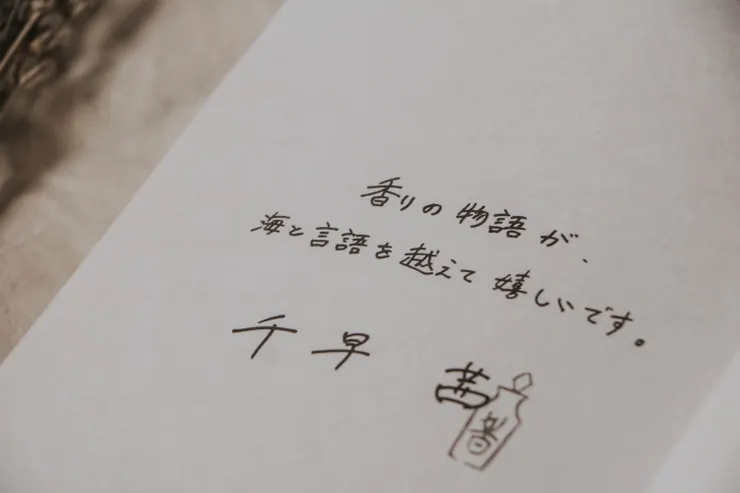 香りの物語が、
海と言語を越えて嬉しいです。
千早 茜
香